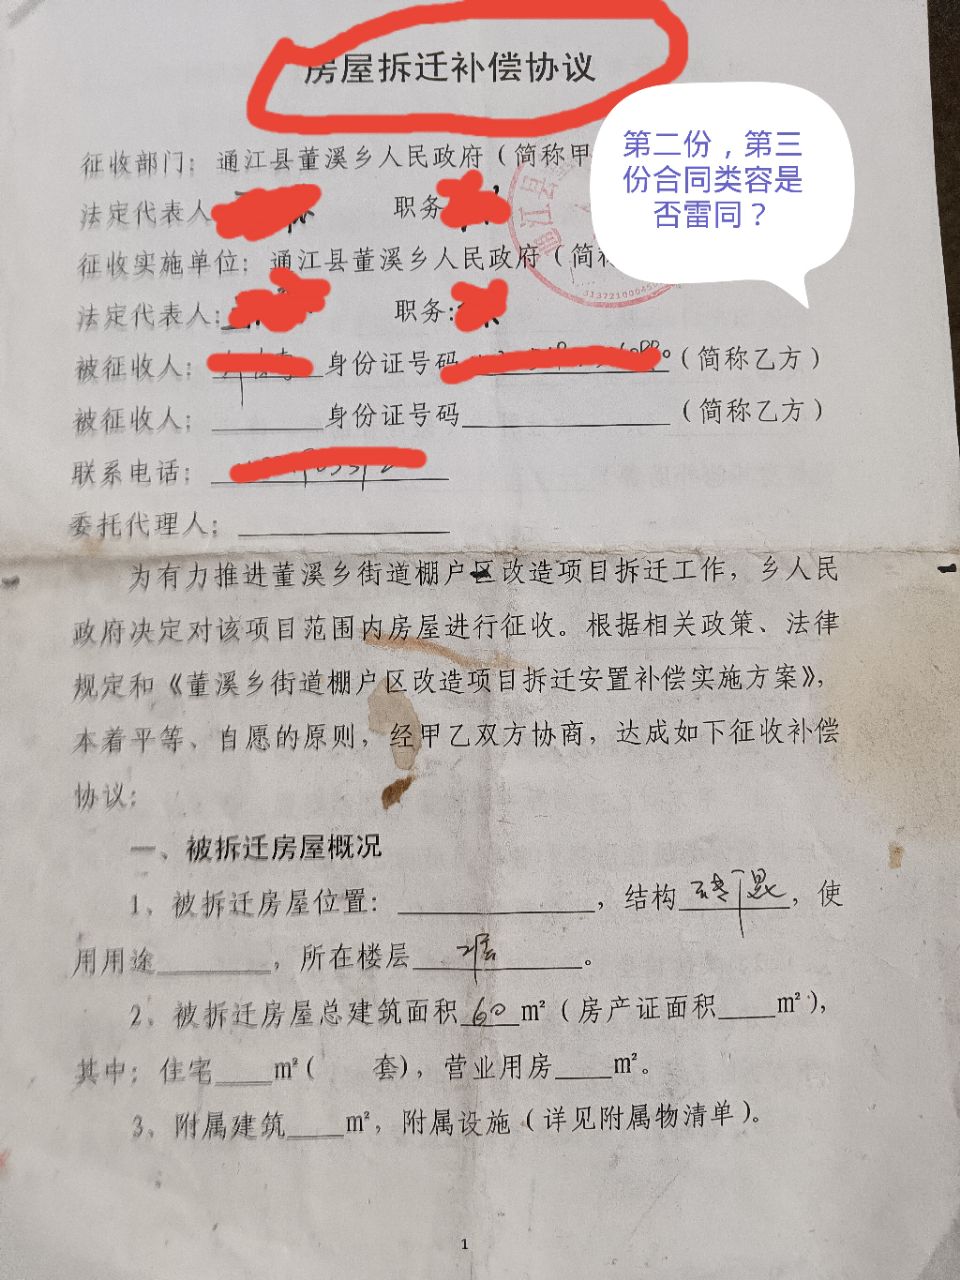 房屋拆迁补偿协议
征收部门：通江县董溪乡人民政府（简称甲
第二份，第三
份合同类容是
否雷同？
通江县
法定代表人
职务
征收实施单位：通江县董溪乡人民政府（简称
法定代表人：
职务：
被征收人：
身份证号码
（简称乙方）
被征收人：
身份证号码
（简称乙方）
联系电话：
委托代理人：
为有力推进董溪乡街道棚户区改造项目拆迁工作，乡人民
政府决定对该项目范围内房屋进行征收。根据相关政策、法律
规定和《董溪乡街道棚户区改造项目拆迁安置补偿实施方案》，
本着平等、自愿的原则，经甲乙双方协商，达成如下征收补偿
协议：
一、被拆迁房屋概况
1、被拆迁房屋位置：，结构砖混，使
用用途，所在楼层2层。
2、被拆迁房屋总建筑面积60m²（房产证面积m²），
其中：住宅m²（ 套），营业用房m²。
3、附属建筑m²，附属设施（详见附属物清单）。
1